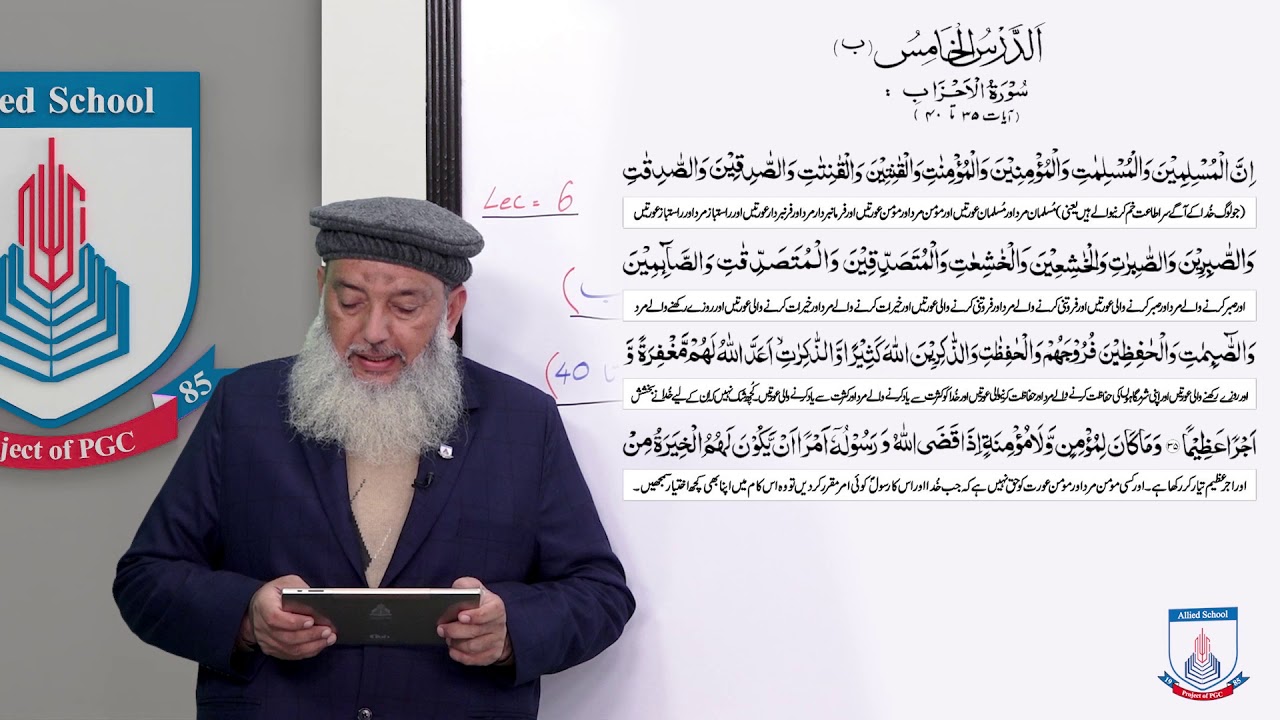 ied School
85
ject of PGC
Lec = 6
ب)
(40 تا
اَلدَّرْسُ الْخَامِسُ (ب)
سُوْرَةُ الْاَحْزَابِ :
(آیات ۳۵ تا ۴۰)
اِنَّ الْمُسْلِمِيْنَ وَالْمُسْلِمٰتِ وَالْمُؤْمِنِيْنَ وَالْمُؤْمِنٰتِ وَالْقٰنِتِيْنَ وَالْقٰنِتٰتِ وَالصّٰدِقِيْنَ وَالصّٰدِقٰتِ
(جو لوگ خُدا کے آگے سر اطاعت خم کرنیوالے ہیں یعنی) مُسلمان مرد اور مُسلمان عورتیں اور مؤمن مرد اور مؤمن عورتیں اور فرمانبردار مرد اور فرمانبردار عورتیں اور راستباز مرد اور راستباز عورتیں
وَالصّٰبِرِيْنَ وَالصّٰبِرٰتِ وَالْخٰشِعِيْنَ وَالْخٰشِعٰتِ وَالْمُتَصَدِّقِيْنَ وَالْمُتَصَدِّقٰتِ وَالصَّآىِٕمِيْنَ
اور صبر کرنے والے مرد اور صبر کرنے والی عورتیں اور فروتنی کرنے والے مرد اور فروتنی کرنے والی عورتیں اور خیرات کرنے والے مرد اور خیرات کرنے والی عورتیں اور روزے رکھنے والے مرد
وَالصّٰٓىِٕمٰتِ وَالْحٰفِظِيْنَ فُرُوْجَهُمْ وَالْحٰفِظٰتِ وَالذّٰكِرِيْنَ اللّٰهَ كَثِيْرًا وَّالذّٰكِرٰتِ اَعَدَّ اللّٰهُ لَهُمْ مَّغْفِرَةً وَّ
اور روزے رکھنے والی عورتیں اور اپنی شرمگاہوں کی حفاظت کرنے والے مرد اور حفاظت کرنیوالی عورتیں اور خُدا کو کثرت سے یاد کرنے والے مرد اور کثرت سے یاد کرنے والی عورتیں۔ کچھ شک نہیں کہ ان کے لیے خُدا نے بخشش
اَجْرًا عَظِيْمًا ۝۳۵ وَمَا كَانَ لِمُؤْمِنٍ وَّلَا مُؤْمِنَةٍ اِذَا قَضَى اللّٰهُ وَرَسُوْلُهٗٓ اَمْرًا اَنْ يَّكُوْنَ لَهُمُ الْخِيَرَةُ مِنْ
اور اجر عظیم تیار کر رکھا ہے۔ اور کسی مؤمن مرد اور مؤمن عورت کو حق نہیں ہے کہ جب خُدا اور اس کا رسولؐ کوئی امر مقرر کر دیں تو وہ اس کام میں اپنا بھی کچھ اختیار سمجھیں۔
Allied School
19 85
Project of PGC